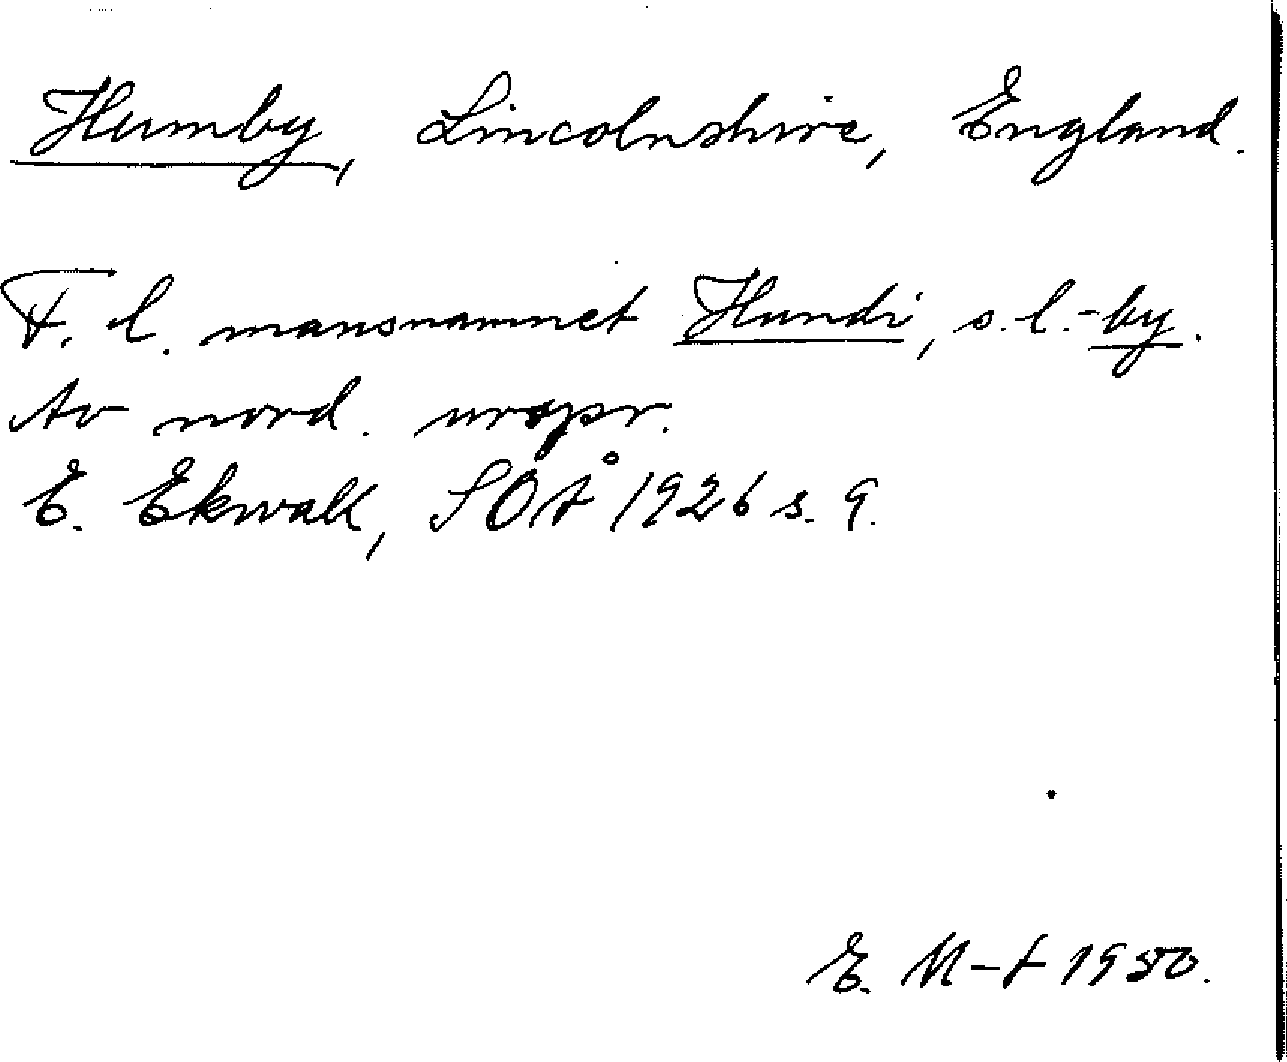 Humby, Lincolnshire, England.
F. l. mansnamnet Hundi, s.l.-by.
Av nord. urspr.
E. Ekwall, SOÅ 1926 s. 9.
E. M-t 1950.